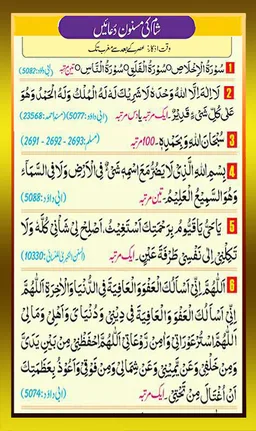 شام کی مسنون دعائیں
وقت اذکار: عصر کے بعد سے مغرب تک
1 سُوْرَةُ الْاِخْلَاصِ، سُوْرَةُ الْفَلَقِ، سُوْرَةُ النَّاسِ۔ تین مرتبہ (ابی داؤد: 5082)
2 لَا اِلٰهَ اِلَّا اللهُ وَحْدَهٗ لَا شَرِيْكَ لَهٗ لَهُ الْمُلْكُ وَلَهُ الْحَمْدُ وَهُوَ
عَلٰى كُلِّ شَیْءٍ قَدِيْرٌ۔ ایک مرتبہ یا دس مرتبہ (ابی داؤد: 5077) (مسند احمد: 23568)
3 سُبْحَانَ اللهِ وَبِحَمْدِهٖ۔ 100 مرتبہ (مسلم: 2693 - 2692 - 2691)
4 بِسْمِ اللهِ الَّذِیْ لَا يَضُرُّ مَعَ اسْمِهٖ شَیْءٌ فِی الْاَرْضِ وَلَا فِی السَّمَآءِ
وَهُوَ السَّمِيْعُ الْعَلِيْمُ۔ تین مرتبہ (ابی داؤد: 5088)
5 يَا حَیُّ يَا قَيُّوْمُ بِرَحْمَتِكَ اَسْتَغِيْثُ، اَصْلِحْ لِیْ شَاْنِیْ كُلَّهٗ وَلَا
تَكِلْنِیْ اِلٰى نَفْسِیْ طَرْفَةَ عَيْنٍ۔ ایک مرتبہ (السنن الکبریٰ للنسائی: 10330)
6 اَللّٰهُمَّ اِنِّیْ اَسْاَلُكَ الْعَفْوَ وَالْعَافِيَةَ فِی الدُّنْيَا وَالْاٰخِرَةِ اَللّٰهُمَّ
اِنِّیْ اَسْاَلُكَ الْعَفْوَ وَالْعَافِيَةَ فِیْ دِيْنِیْ وَدُنْيَایَ وَاَهْلِیْ وَمَالِیْ
اَللّٰهُمَّ اسْتُرْ عَوْرَاتِیْ وَاٰمِنْ رَوْعَاتِیْ اَللّٰهُمَّ احْفَظْنِیْ مِنْ بَيْنِ يَدَیَّ
وَمِنْ خَلْفِیْ وَعَنْ يَّمِيْنِیْ وَعَنْ شِمَالِیْ وَمِنْ فَوْقِیْ وَاَعُوْذُ بِعَظَمَتِكَ
اَنْ اُغْتَالَ مِنْ تَحْتِیْ۔ ایک مرتبہ (ابی داؤد: 5074)